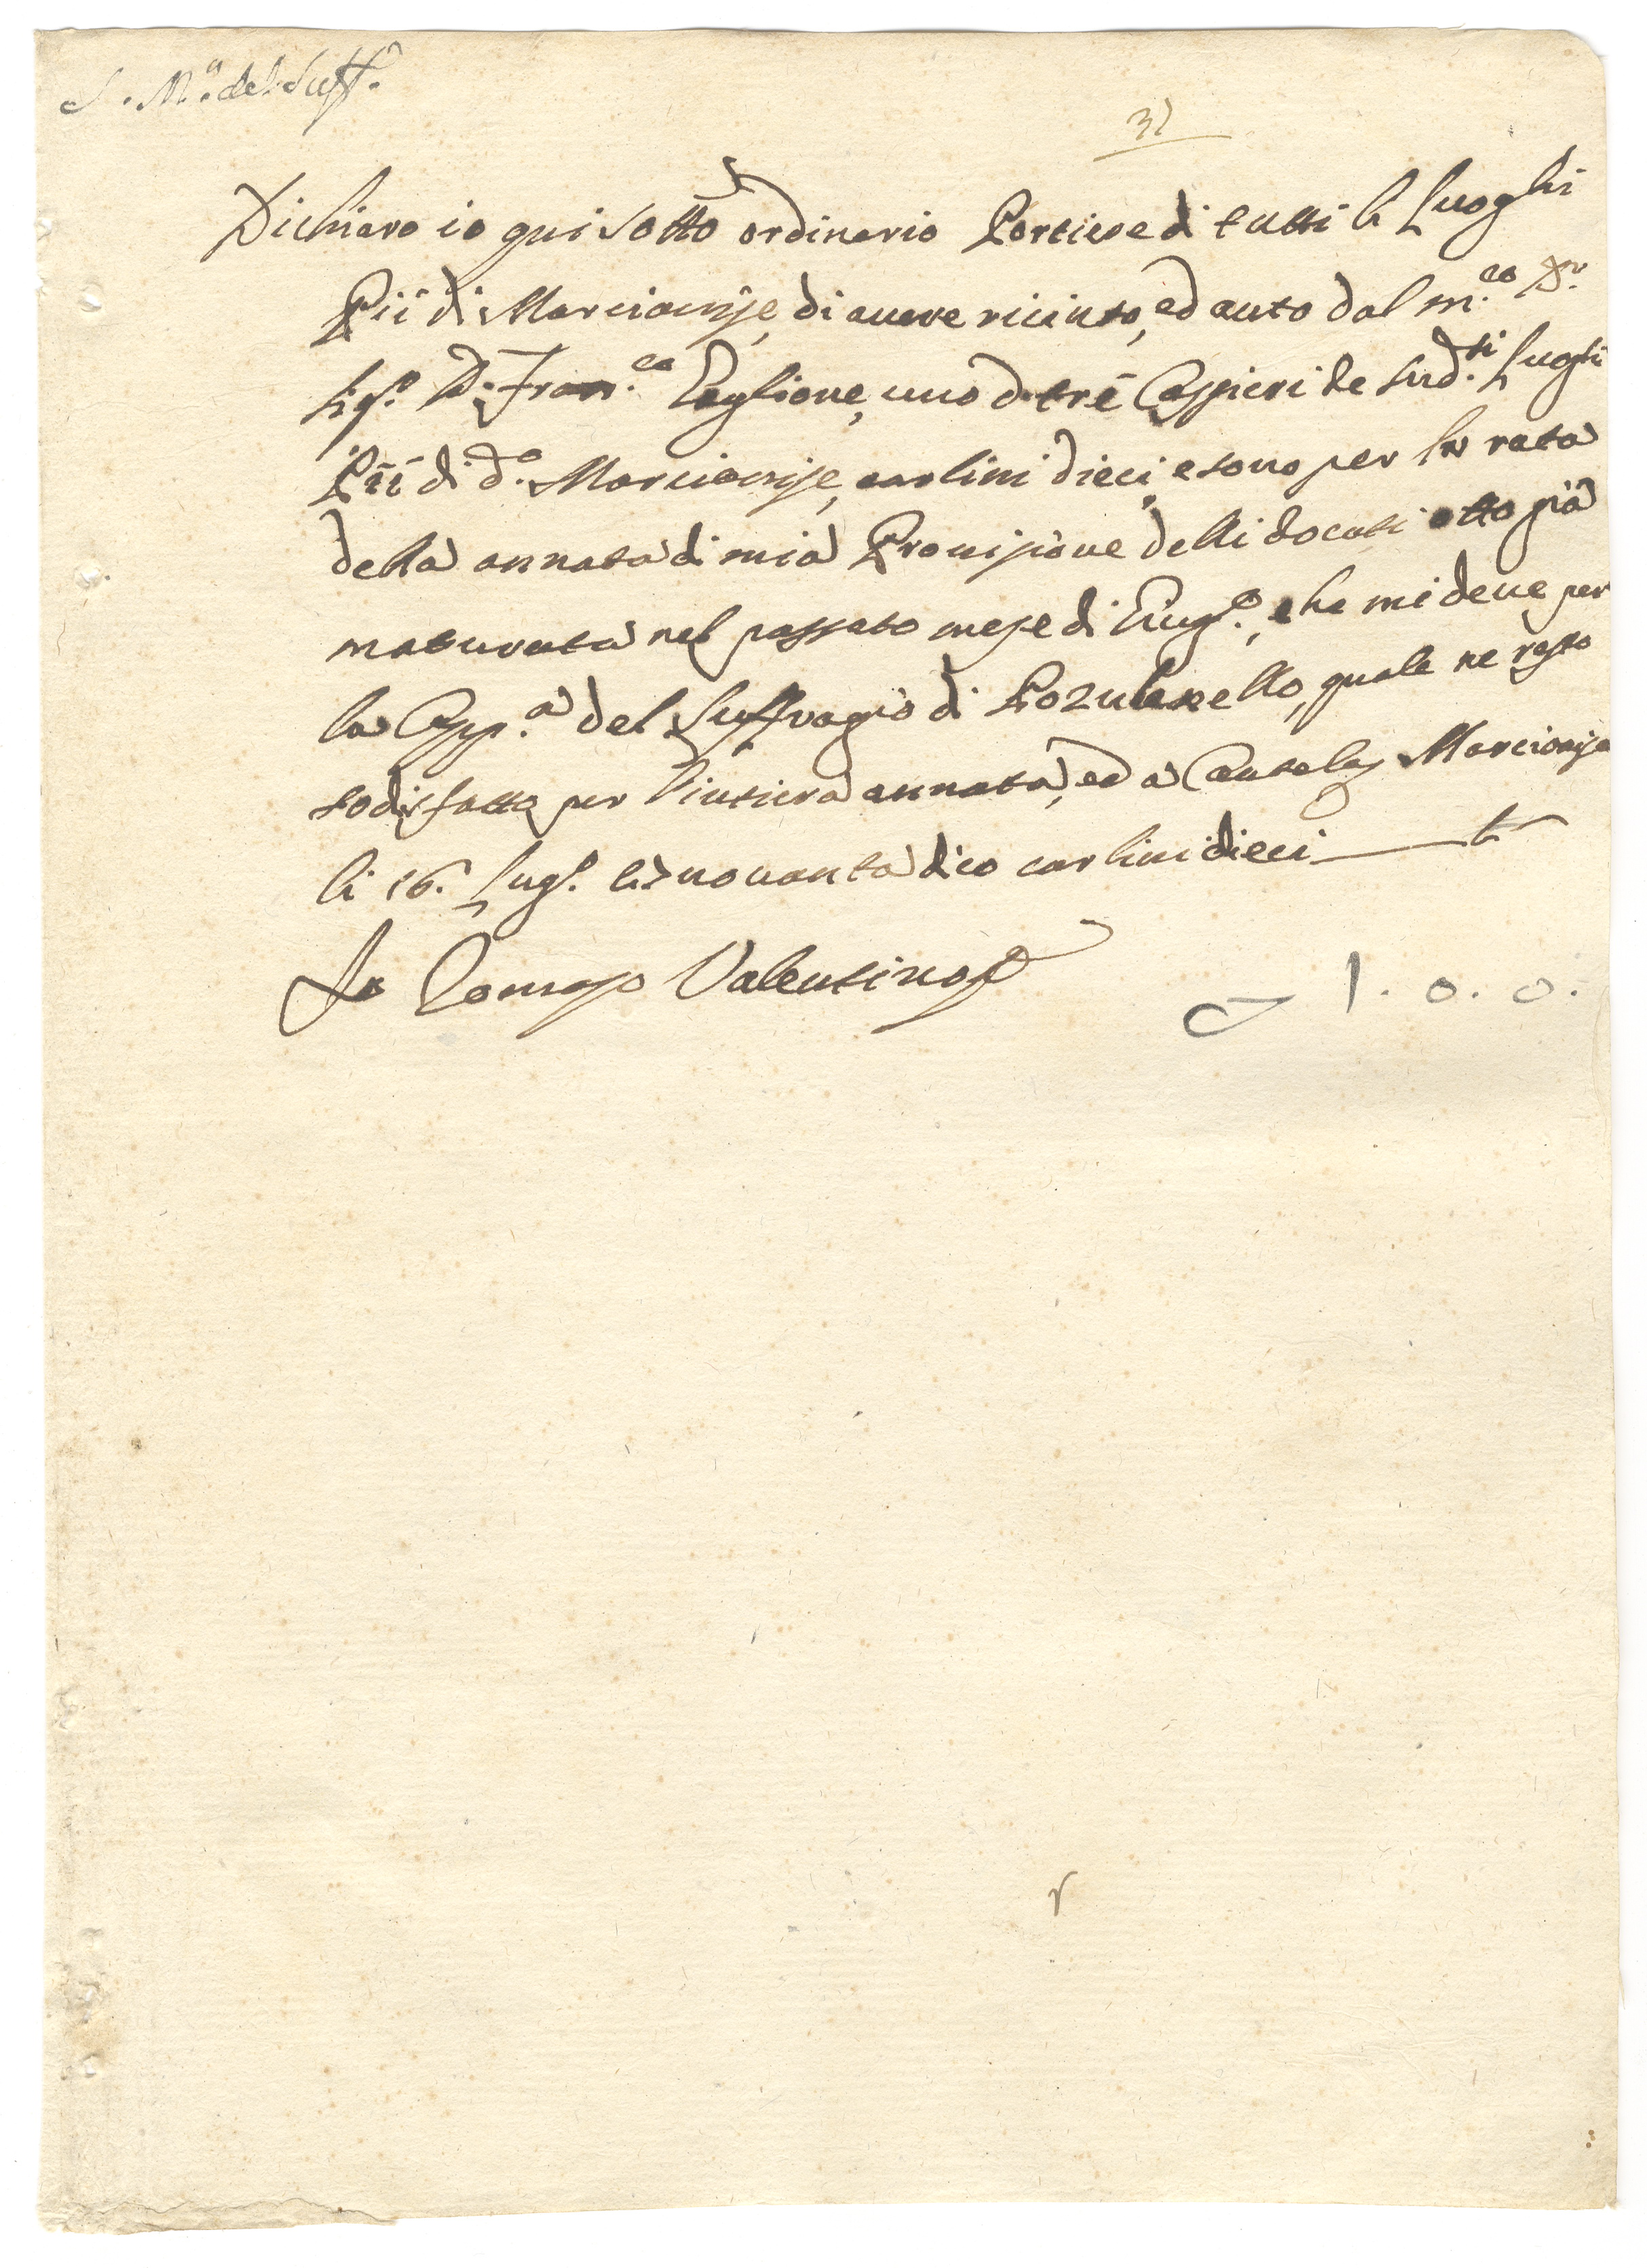 S. M.a del Suff.o
32
Dichiaro io qui sotto ordinario Portiere di tutti li Luoghi
Pii di Marcianise, di avere riciuto, ed auto dal m.co D.r
Sig.r D. Fran.co Paglione, uno de trè Cassieri de sud.ti Luoghi
Pii di d.a Marcianise, carlini dieci, e sono per la rata
della annata di mia Provisione delli docati otto già
maturata nel passato mese di Giug.o, che mi deve per
la Capp.a del Suffragio di Pozulaniello, quale ne resto
sodisfatto per l'intiera annata, ed a Cautela Marcianise
li 16. Lugl. novanta dico carlini dieci
Io Tomaso Valentino
1. 0. 0.